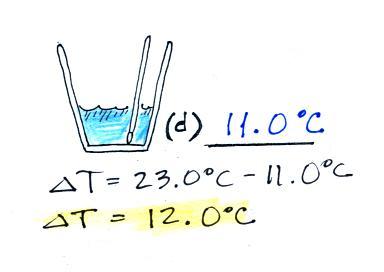 (d) 11.0°C
ΔT = 23.0°C - 11.0°C
ΔT = 12.0°C